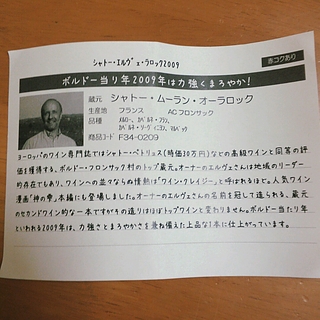 シャトー・エルヴェ・ラロック2009
赤コクあり
ボルドー当り年2009年は力強くまろやか!
蔵元 シャトー・ムーラン・オーラロック
生産地 フランス ACフロンサック
品種 メルロー、カベルネ・フラン、
カベルネ・ソーヴィニヨン、マルベック
商品コード F34-0209
ヨーロッパのワイン専門誌ではシャトー・ペトリュス(時価30万円)などの高級ワインと同等の評
価を獲得する、ボルドー・フロンサック村のトップ蔵元。オーナーのエルヴェさんは地域のリーダー
的存在でもあり、ワインへの並々ならぬ情熱は「ワイン・クレイジー」と呼ばれるほど。人気ワイン
漫画「神の雫」本編にも登場しました。オーナーのエルヴェさんの名前を冠して造られる、蔵元
のセカンドワイン的な一本ですがその造りはほぼトップワインと変わりません。ボルドー当たり年
といわれる2009年は、力強さとまろやかさを兼ね備えた上品な1本に仕上がっています。